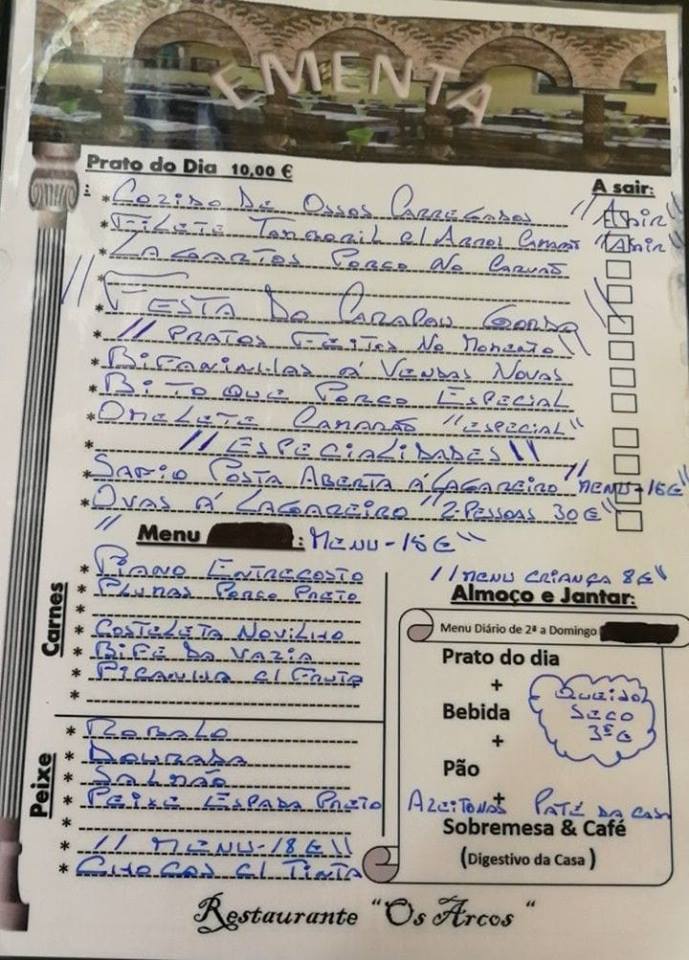 EMENTA
Prato do Dia 10,00 €
:
A sair:
* Cozido De Ossos Carregados "Asair"
* Filete Tamboril c/ Arroz Camarão "Asair"
* Lagartos Porco No Carvão
*
// Festa Do Carapau Gordo \\
* // Pratos Feitos No Momento \\
* Bifaninhas á Vendas Novas
* Bitoque Porco Especial
* Omelete Camarão "Especial"
* // Especialidades \\
* Safio Posta Aberta á Lagareiro "Menu-16€"
* Ovas á Lagareiro "2-Pessoas 30€"
Menu : "Menu-15€"
Carnes
* Piano Entrecosto
* Plumas Porco Preto
*
* Costeleta Novilho
* Bife Da Vazia
* Picanha c/ Fruta
*
Peixe
* Robalo
* Dourada
* Salmão
* Peixe Espada Preto
*
* // Menu-18€ \\
* Chocos c/ Tinta
// Menu Criança 8€ \\
Almoço e Jantar:
Menu Diário de 2ª a Domingo
Prato do dia
+
Bebida
+
Pão
+
Azeitonas Paté Da Casa
Sobremesa & Café
(Digestivo da Casa)
Seco
3€
Restaurante "Os Arcos "